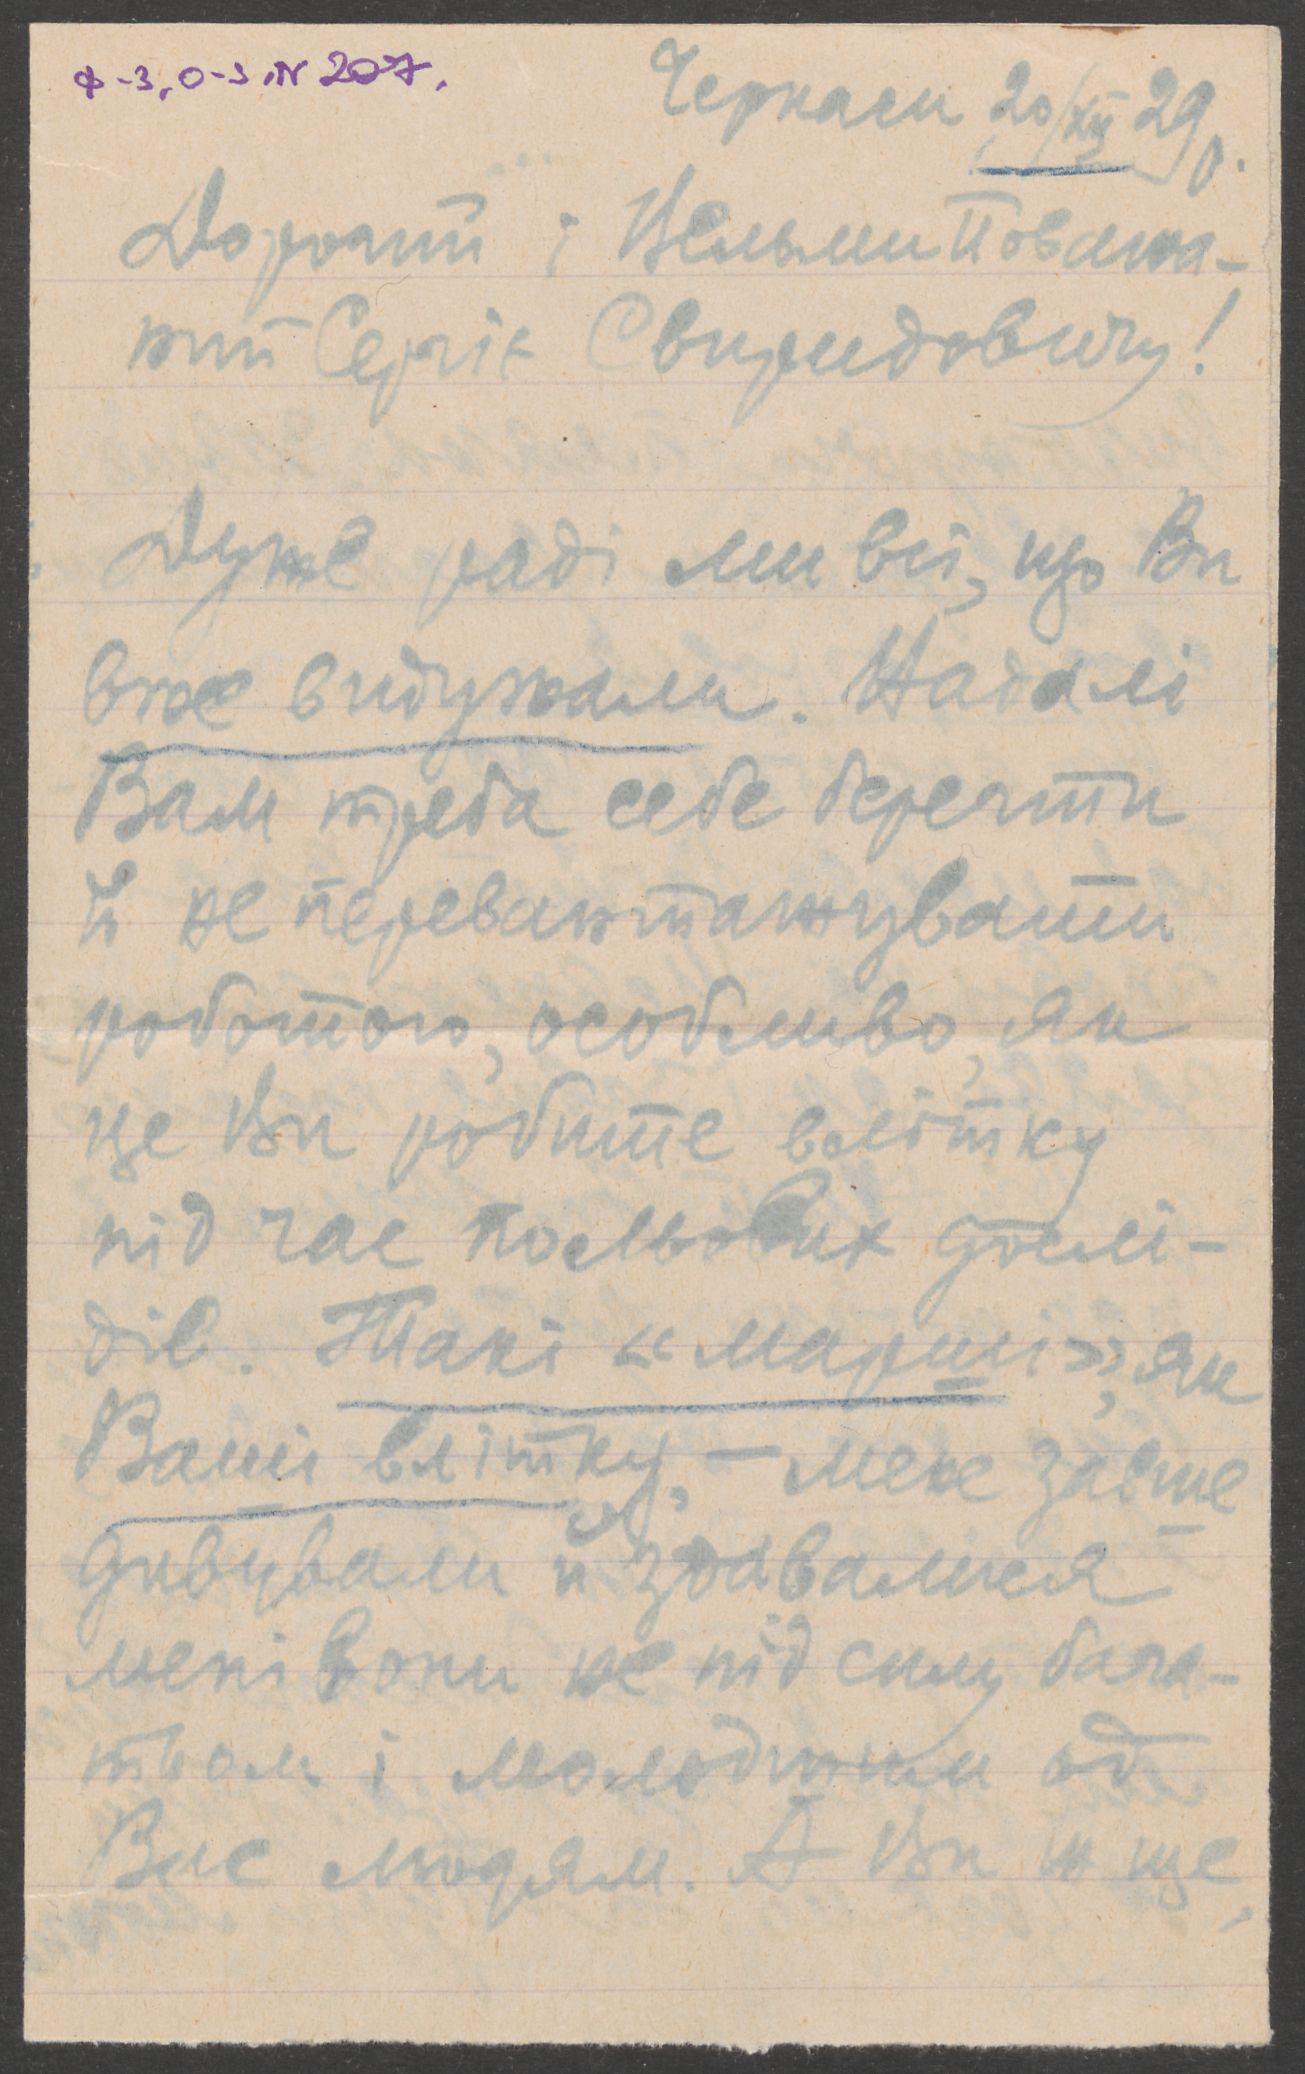 Ф-3, О-3, N 207.
Черкаси 20/XII 29р.
Дорогий і Вельмиповаж-
ний Сергіє Свиридовичу!
Дуже раді ми всі, що Ви
вже видужали. Надалі
Вам треба себе берегти
й не перевантажувати
роботою, особливо, як
це Ви робите влітку
під час польових дослі-
дів. Такі «марші», як
Ваші влітку, – мене завше
дивували й здавалися
мені вони не під силу бага-
тьом і молодчим од
Вас людям. А Ви ж ще,